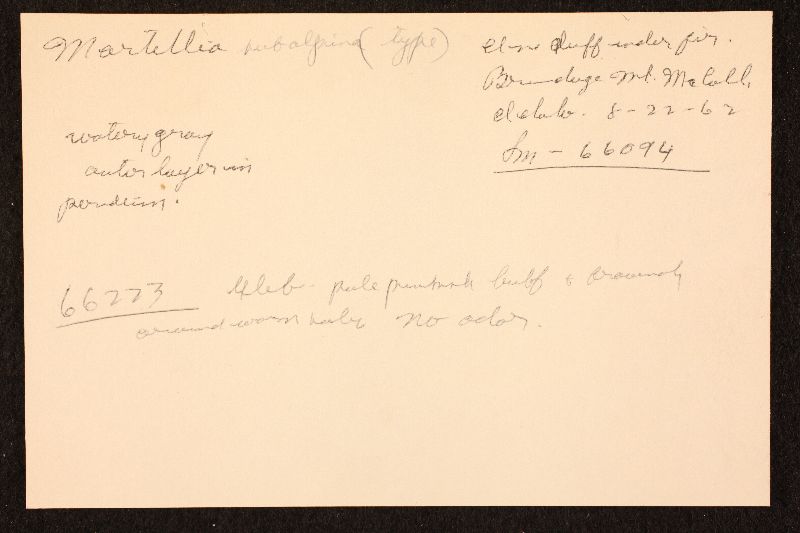 Martellia subalpina (type)
In duff under fir.
Brundage Mt. McCall,
Idaho. 8-22-62
Sm - 66094
watery gray
outer layer in
peridium.
66223 Gleba pale pinkish buff & brownish
around worm holes No odor.